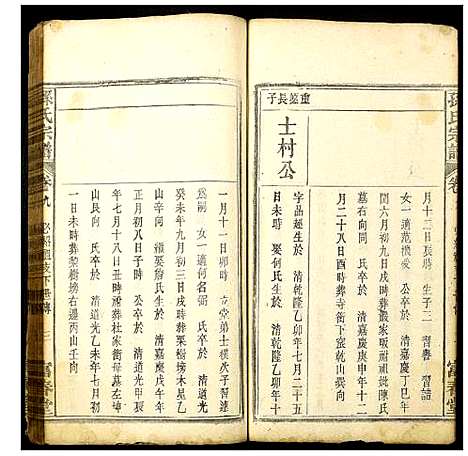 孫氏宗譜
卷
月十二日戌時 生子三 齊
女一適 公卒於 清嘉慶丁巳年
閏六月初五日戌時葬嚴家坂耐祖妣陳氏
墓右向同 氏卒於 清嘉慶庚申十二
月二十八日酉時葬寺衝下 山癸向
重 長子
士村公
字品 生於 清乾隆乙卯年七月二十五
日未時 娶何氏生於 清乾隆乙卯年十
富春堂
一月十一日卯時 立堂弟士樸次子習達
為嗣 女一適何名弼 氏卒於 清道光
乙亥年九月初三日戌時葬栗樹塝木星乙
山 向 繼娶詹氏生於 清嘉慶戊午年
正月初八日子時 公卒於 清道光甲辰
年七月十八日丑時葬杜家衝母墓左下
山艮向 氏卒於 清道光乙未年七月初
日未時葬梨樹塝右邊丙山壬向
孫氏宗譜
卷九
祖支下世傳
富春堂